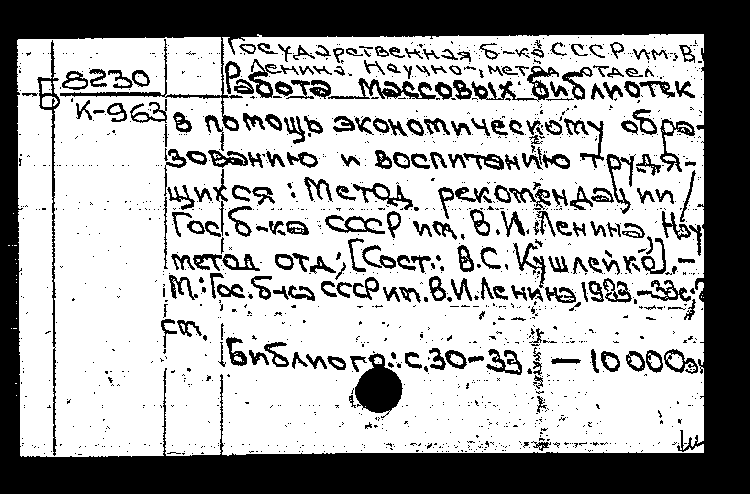 Государственная б-ка СССР им. В.
Ленина. Научно-, метод. отдел
Б 8230
К-963
Работа массовых библиотек
в помощь экономическому обра-
зованию и воспитанию трудя-
щихся : Метод. рекомендации /
Гос. б-ка СССР им. В.И. Ленина, Науч
метод отд.; [Сост.: В.С. Кушлейко]. -
М.: Гос. б-ка СССР им. В.И. Ленина, 1983. - 33 с.;
см.
Библиогр.: с. 30-33. — 10000 эк